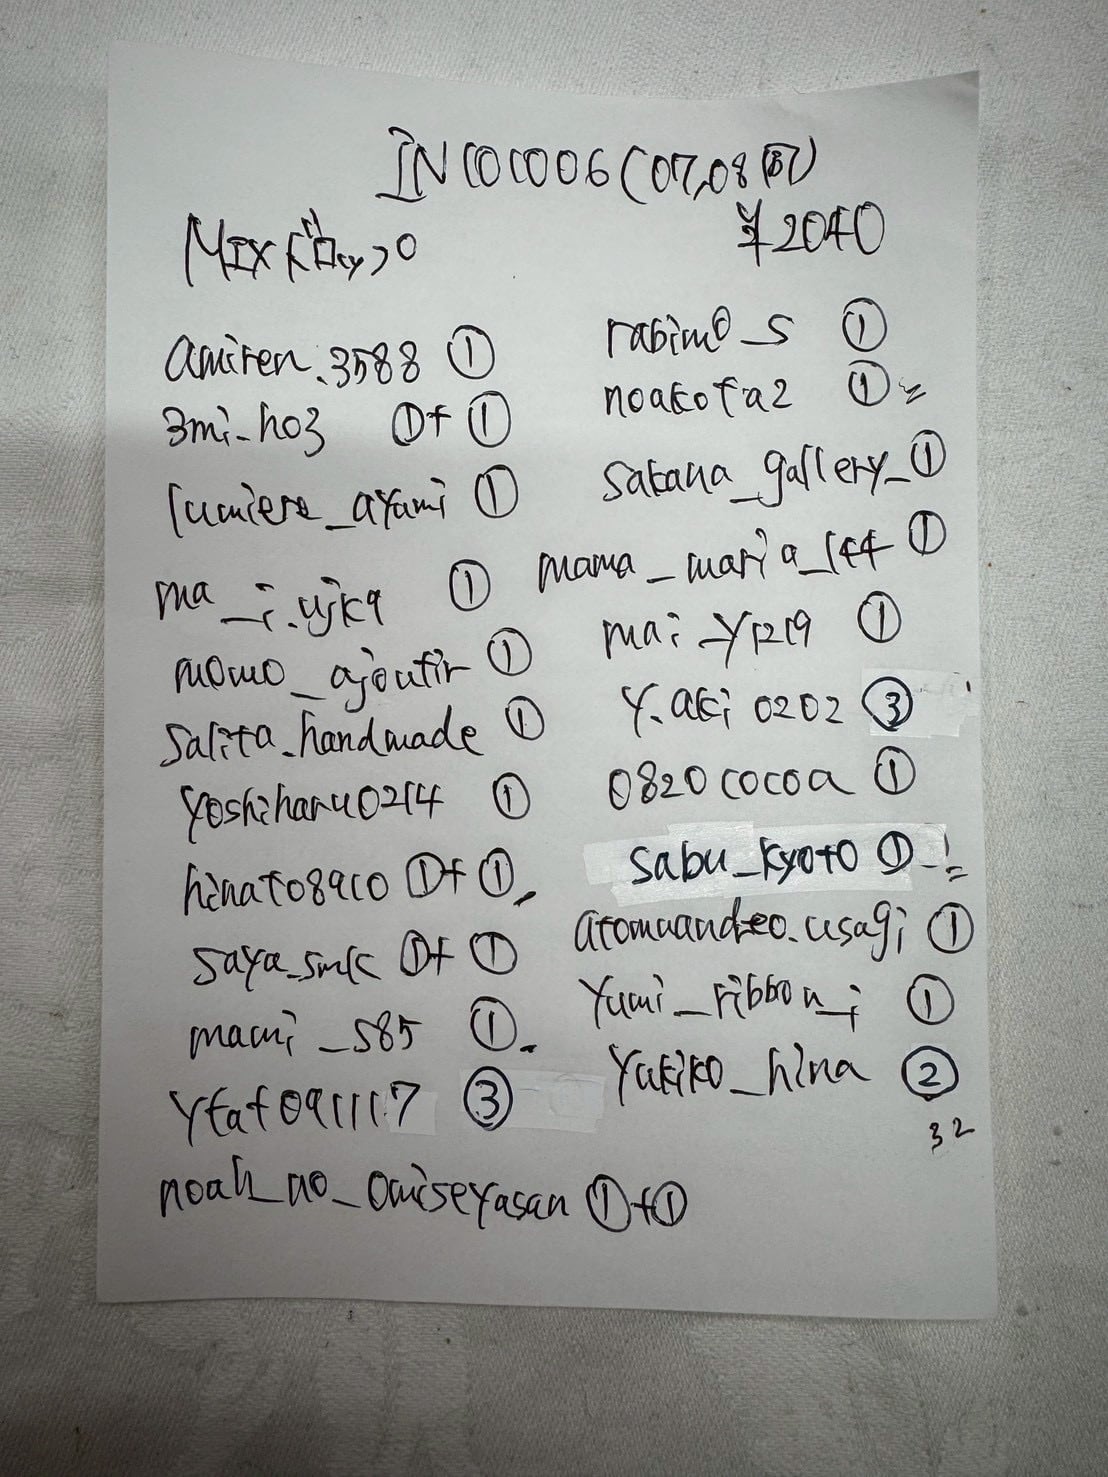 ¥2040
amiren.3588 ①
3mi_ho3 ①+①
lumiere_ayami ①
ma_i.ujk9 ①
momo_ajoutir ①
salita_handmade ①
yoshiharu0214 ①
hinato8910 ①+①
saya_smk ①+①
mami_s85 ①
ytat091117 ③
noah_no_omiseyasan ①+①
rabimo_s ①
noakota2 ①
sakana_gallery_ ①
mama_maria_144 ①
mai_y1219 ①
y.aki0202 ③
0820cocoa ①
sabu_kyoto ①
atomuandleo.usagi ①
yumi_ribbon_j ①
yukiko_hina ②
32